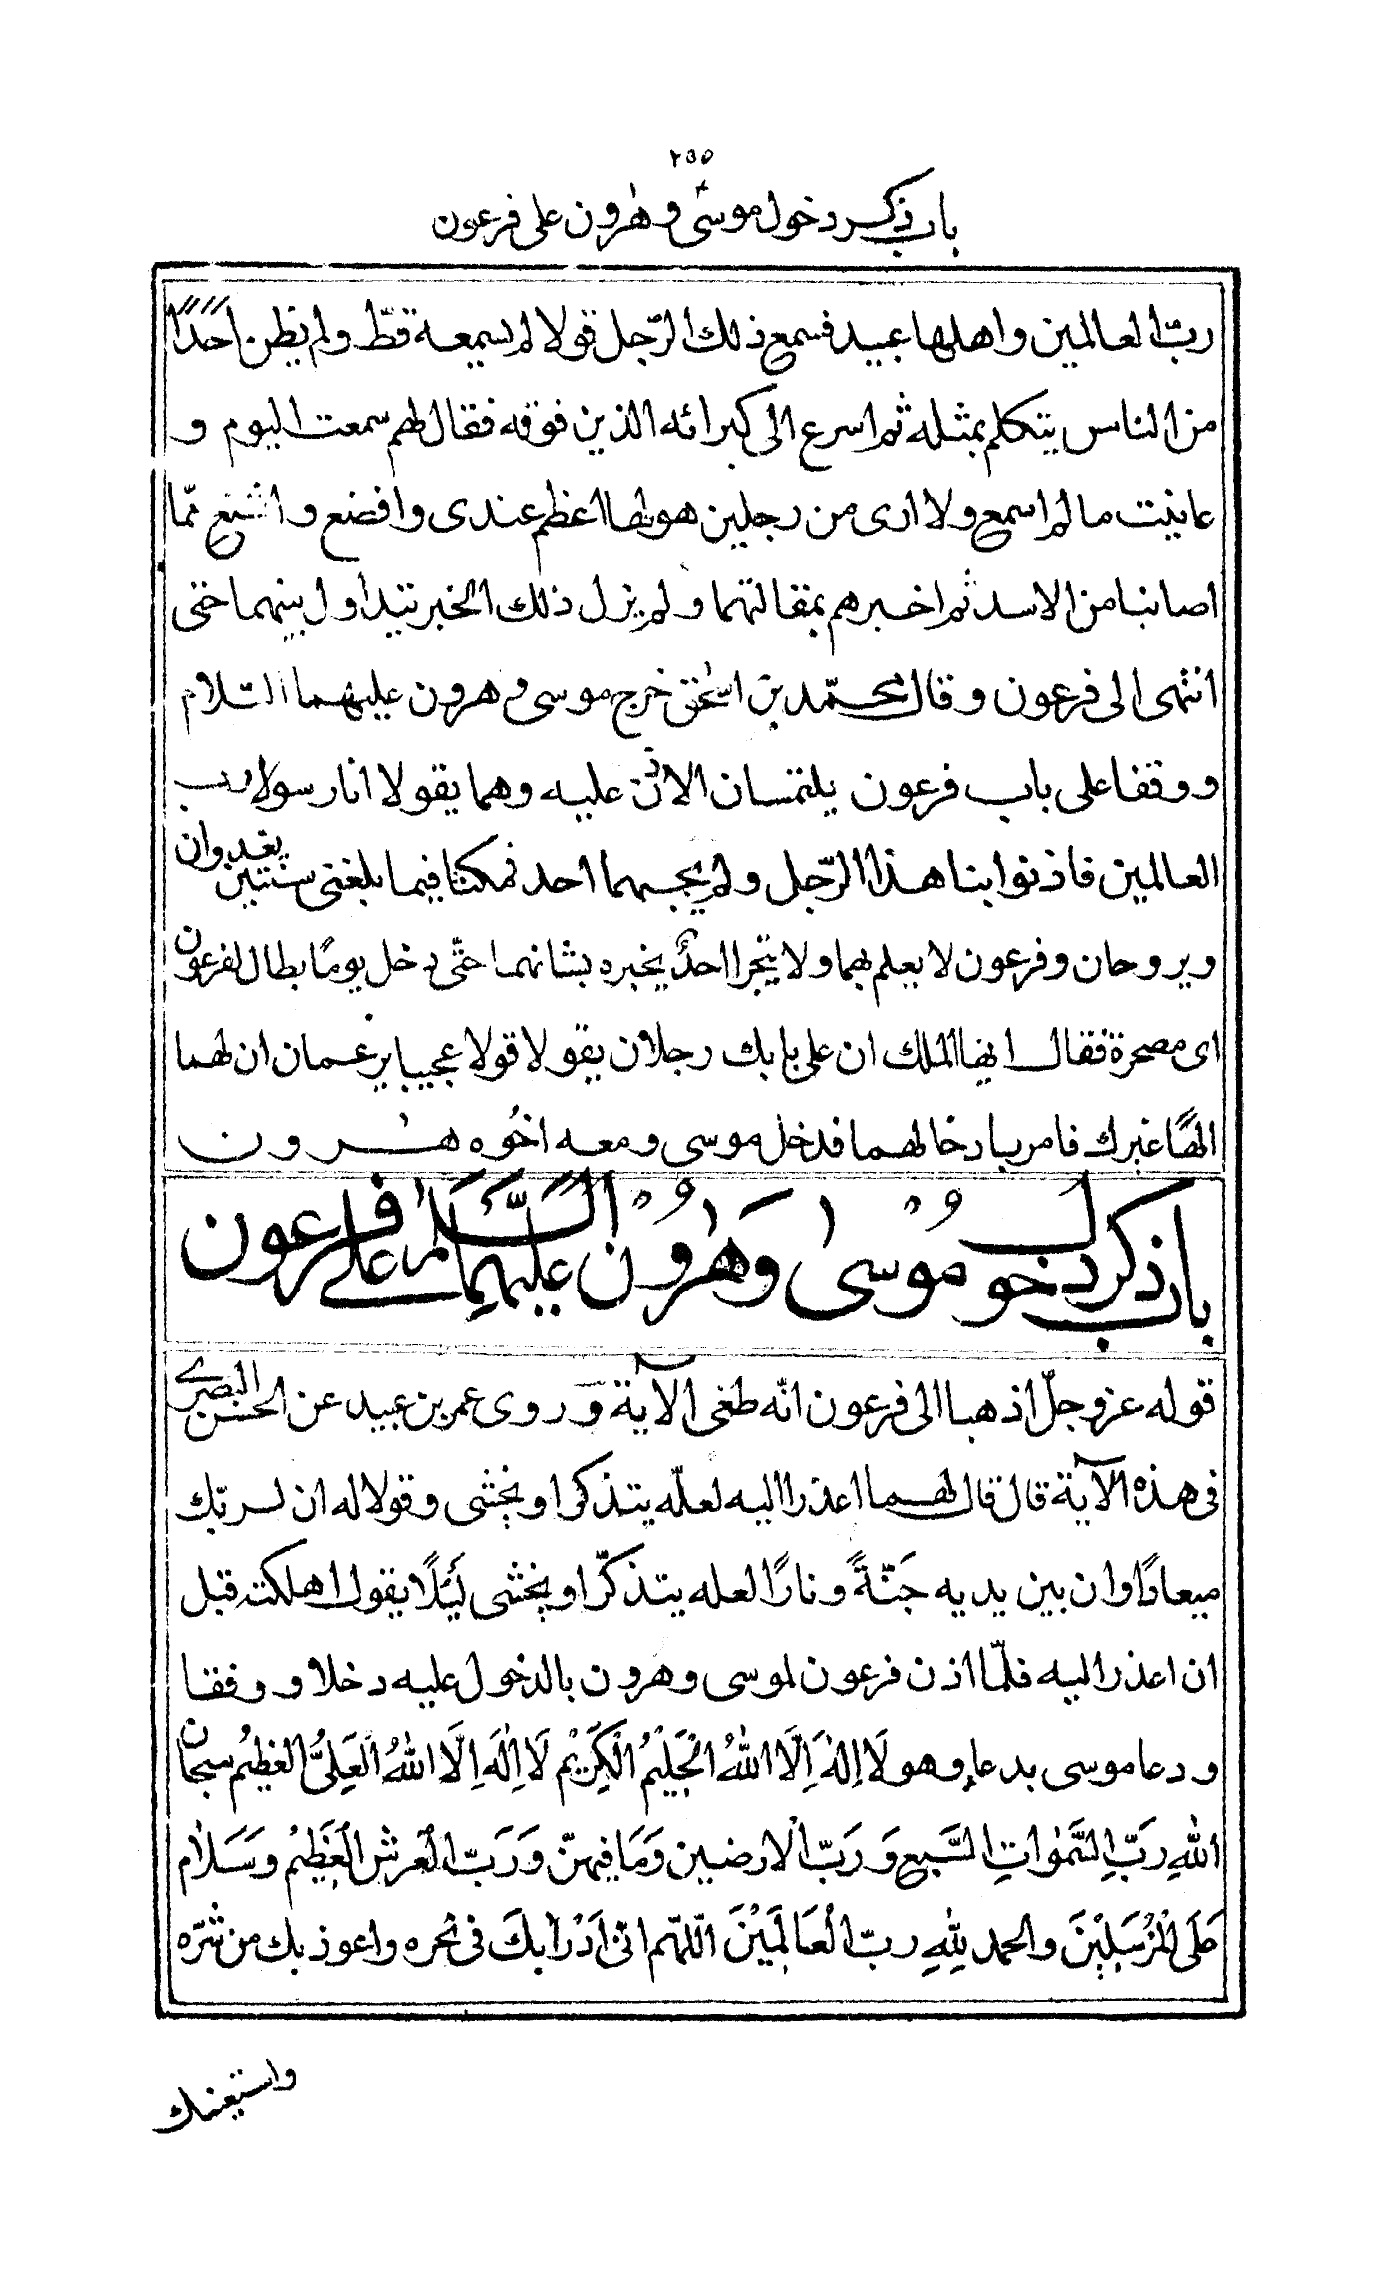 ٢٥٥
باب ذكر دخول موسى وهرون على فرعون
ربّ العالمين واهلها عبيد فسمع ذلك الرّجل قولا لم يسمعه قطّ ولم يظن احَدًا
من الناس يتكلم بمثله ثم اسرع الى كبرائه الذين فوقه فقال لهم سمعت اليوم و
عاينت ما لم اسمع ولا ارى من رجلين هولهما اعظم عندى وافضع واشنع ممّا
اصابنا من الاسد ثم اخبرهم بمقالتهما ولم يزل ذلك الخبر يتداول بينهما حتى
انتهى الى فرعون وقال محمّد بن اسحٰق خرج موسى وهرون عليهما السّلام
ووقفا على باب فرعون يلتمسان الاذن عليه وهما يقولا انا رسولا رب
العالمين فاذنوا بنا هذا الرّجل ولم يجبهما احد فمكثا فيما بلغنى سنتين يغدوان
ويروحان وفرعون لا يعلم بهما ولا يتجرا احدٌ يخبره بشانهما حتّى دخل يومًا بطال لفرعون
اى مصحرة فقال ايها الملك ان على بابك رجلان يقولا قولا عجيبا يزعمان ان لهما
الهًا غيرك فامر بادخالهما فدخل موسى ومعه اخُوه هٰرون
باب ذكر دخول مُوسىٰ وَهٰرُون عليهِما السَّلَام على فرعون
قوله عز وجلّ اذهبا الى فرعون انّه طغى الآية وَروى عمر بن عبيد عن الحسن البصرى
فى هذه الآية قال قال لهما اعذرا اليه لعلّه يتذكر او يخشى وقولا له ان لربّك
ميعادًا وان بين يديه جَنّةً ونارًا لعله يتذكّر او يخشى لَئِلَّا يقول اهلكته قبل
ان اعذر اليه فلمّا اذن فرعون لموسى وهرون بالدخول عليه دخلا ووقفا
ودعا موسى بدعاءٍ وهو لَا اِلٰهَ اِلَّا اللهُ الْحَلِيْمُ الْكَرِيْم لَا اِلٰهَ اِلَّا اللهُ الْعَلِىُّ العَظِيْمُ سبحان
اللهِ رَبِّ السَّمٰوَاتِ السَّبع وَرَبِّ الْارضين وَمَا فيهنّ وَرَبّ العرش العَظِيْم وَسَلام
عَلَى الْمُرْسَلِيْنَ والحمد لِلّٰهِ ربّ الْعَالَمِيْنَ اللّٰهم انّى اَدْرَاُ بكَ فى نحره واعوذ بك من شرّه
واستعينك